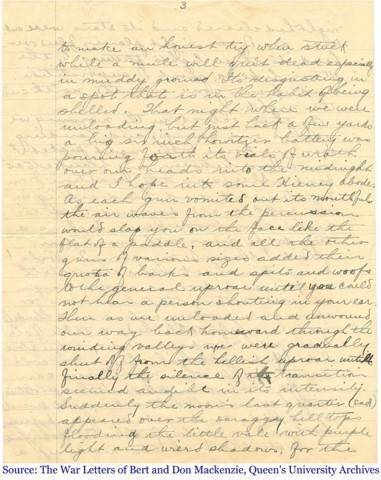 3
to make an honest try when stuck
while a mule will quit dead especially
in muddy ground. Its disgusting in
a spot that is in the habit of being
shelled. That night where we were
unloading but just back a few yards
a big six inch howitzer battery was
pouring forth its vials of wrath
over our heads into the midnight
and I hope into some Heiney abode.
As each gun vomited out its mouthful
the air waves from the percussion
would slap you on the face like the
flat of a paddle, and all the other
guns of various sizes added their
quota of barks and spits and woofs
to the general uproar until you could
not hear a person shouting in your ear.
Then as we unloaded and wound
our way back homeward through the
winding valley we were gradually
shut off from the hellish uproar until
finally the silence of the transition
seemed audible in its intensity.
Suddenly the moon's last quarter
appeared over the scraggy hilltops
flooding the little vale with purple
light and wierd shadows. For the
Source: The War Letters of Bert and Don Mackenzie, Queen's University Archives